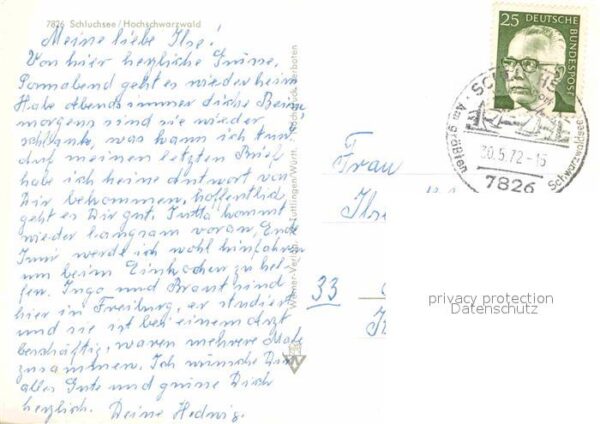 7826 Schluchsee/Hochschwarzwald
Meine liebe Ilse!
Von hier herzliche Grüsse,
Sonnabend geht es wieder heim
Habe abends immer dicke Beine
morgens sind sie wieder
schlank, was kann ich tun?
Auf meinen letzten Brief
habe ich keine Antwort von
Dir bekommen, hoffentlich
geht es Dir gut. Jutta kommt
wieder langsam voran, Ende
Juni werde ich wohl hinfahren
um beim Einkochen zu hel-
fen. Ingo und Braut sind
hier in Freiburg, er studiert
und sie ist bei einem Arzt
beschäftigt, waren mehrere Male
zusammen. Ich wünsche Dir
alles Gute und grüsse Dich
herzlich. Deine Hedwig.
Nachdruck verboten
Tuttlingen/Württ.
25
DEUTSCHE
BUNDESPOST
Am größten
Schwarzwaldsee
30.5.72-15
7826
Frau
33
privacy protection
Datenschutz